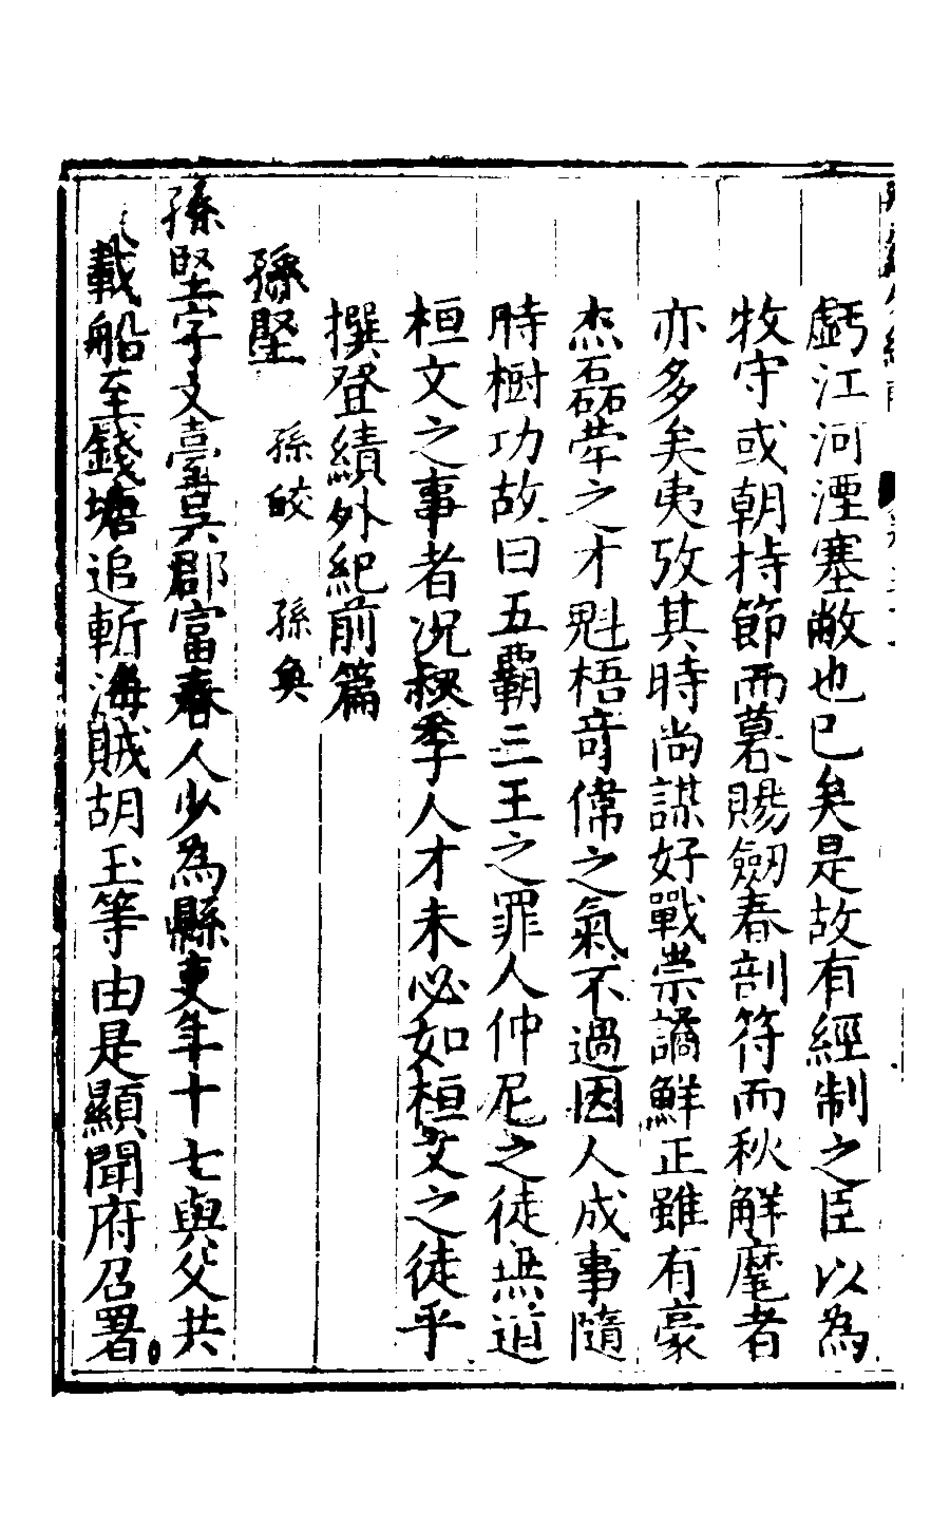 虧江河湮塞敝也已矣是故有經制之臣以為
牧守或朝持節而暮賜劒春剖符而秋解麾者
亦多矣夷攷其時尚謀好戰崇譎鮮正雖有豪
杰磊犖之才魁梧竒偉之氣不過因人成事隨
時樹功故曰五覇三王之罪人仲尼之徒無道
桓文之事者况叔季人才未必如桓文之徒乎
撰登績外紀前篇
孫堅 孫皎 孫奐
孫堅字文臺吳郡富春人少為縣吏年十七與父共
載船至錢塘追斬海賊胡玉等由是顯聞府召署